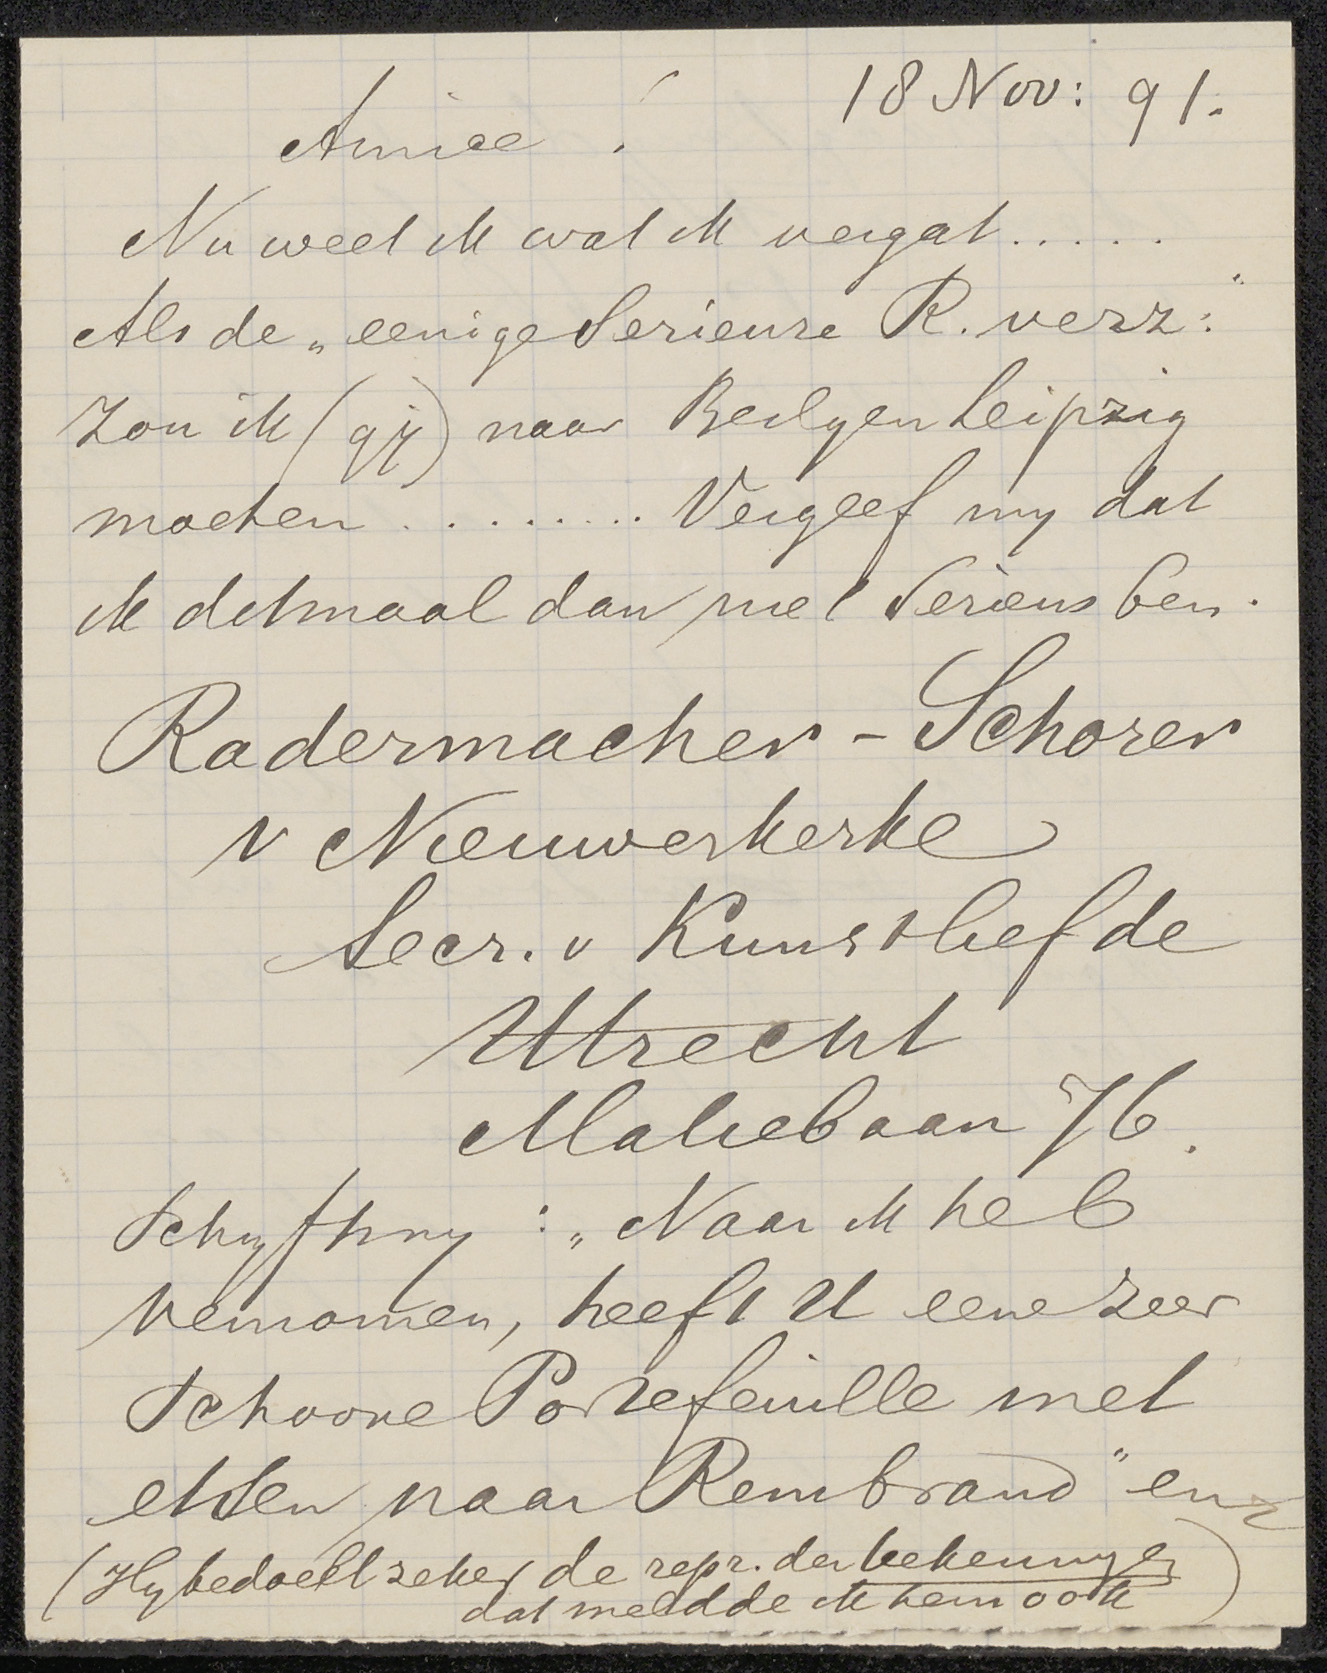 18 Nov: 91.
Amice !
Nu weet ik wat ik vergat.....
Als de „eenige Serieuse R. verz:"
zou ik (gij) naar Leipzig
moeten ......... Vergeef my dat
ik ditmaal dan niet Serieus ben.
Radermacher - Schorer
v Nieuwerkerke
Secr. v Kunstliefde
Utrecht
Maliebaan 76.
Schryft my : „Naar ik heb
vernomen, heeft U eene zeer
Schoone Portefeuille met
etsen naar Rembrand" enz
(Hy bedoelt zeker de repr. der teekeningen
dat meldde ik hem ook)